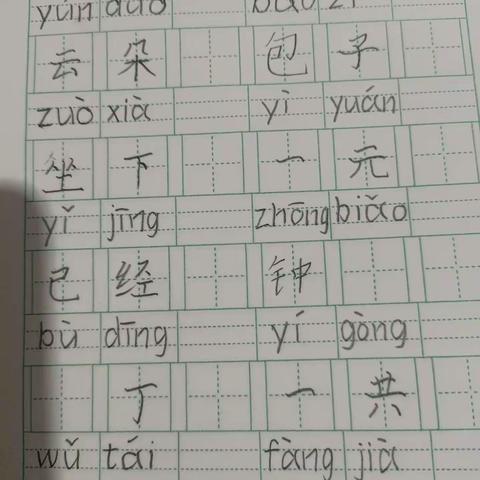 云朵 包子
zuò xià yì yuán
坐下 一元
yǐ jīng zhōng biǎo
已经 钟
bù dīng yí gòng
丁 一共
wǔ tái fàng jià